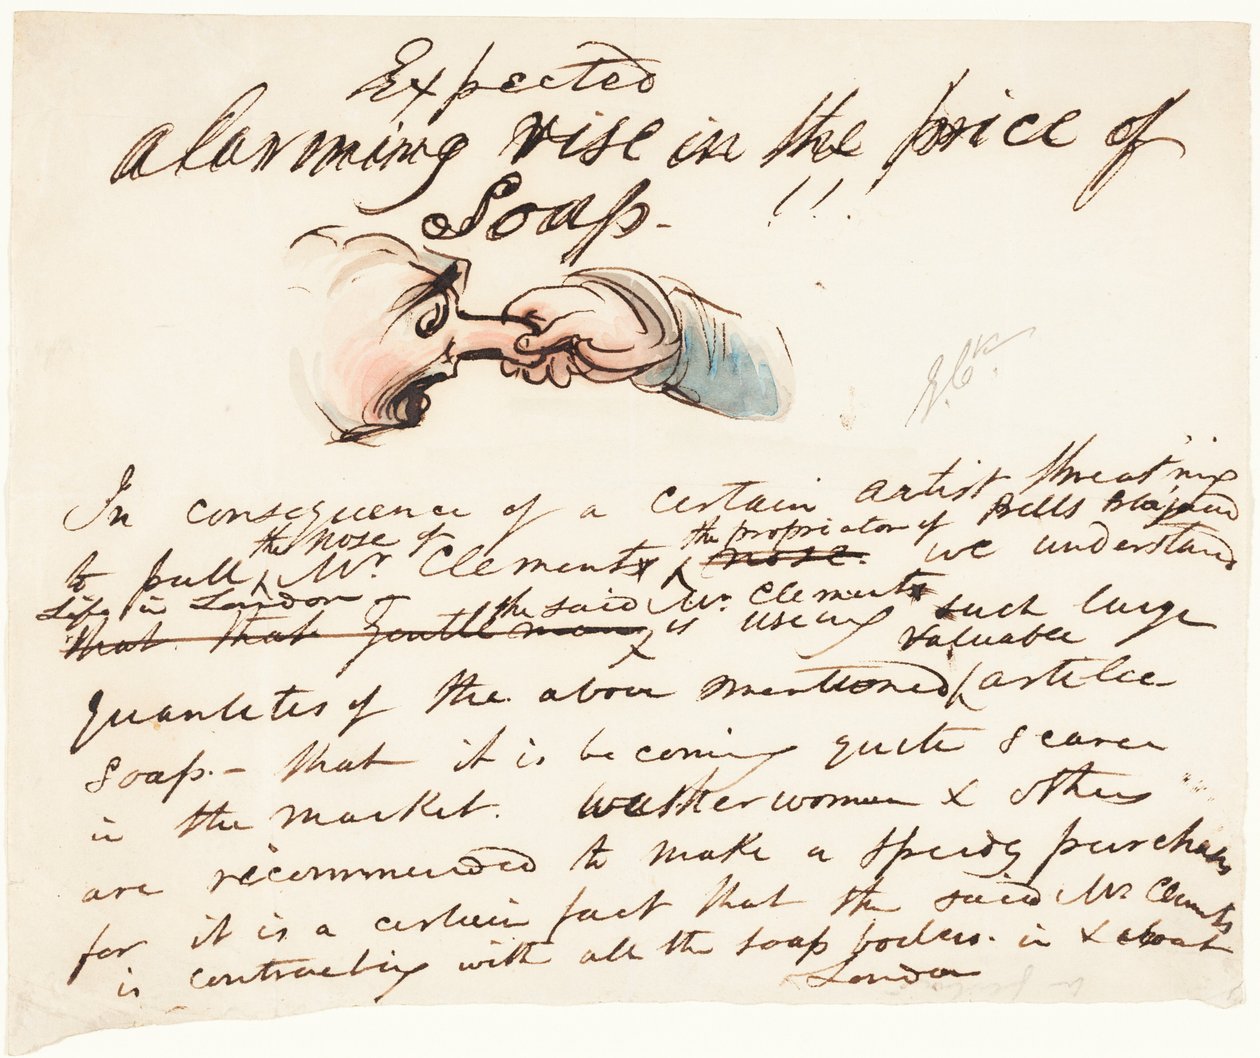 Expected
alarming rise in the price of
Soap - !!!
G. Ck.
In consequence of a certain artist threat'nig
to pull the nose of Mr Clements the propriator of Bells
nose. we understand
Life in London -
that that Gentleman the said Mr Clements is useing such large
valuable
quantetis of the above mentioned article
Soap. - that it is becoming quite scarce
in the market. washerwomen & others
are recommended to make a speedy purchase
for it is a certain fact that the said Mr Clements
is contracting with all the soap boilers. in & about
London